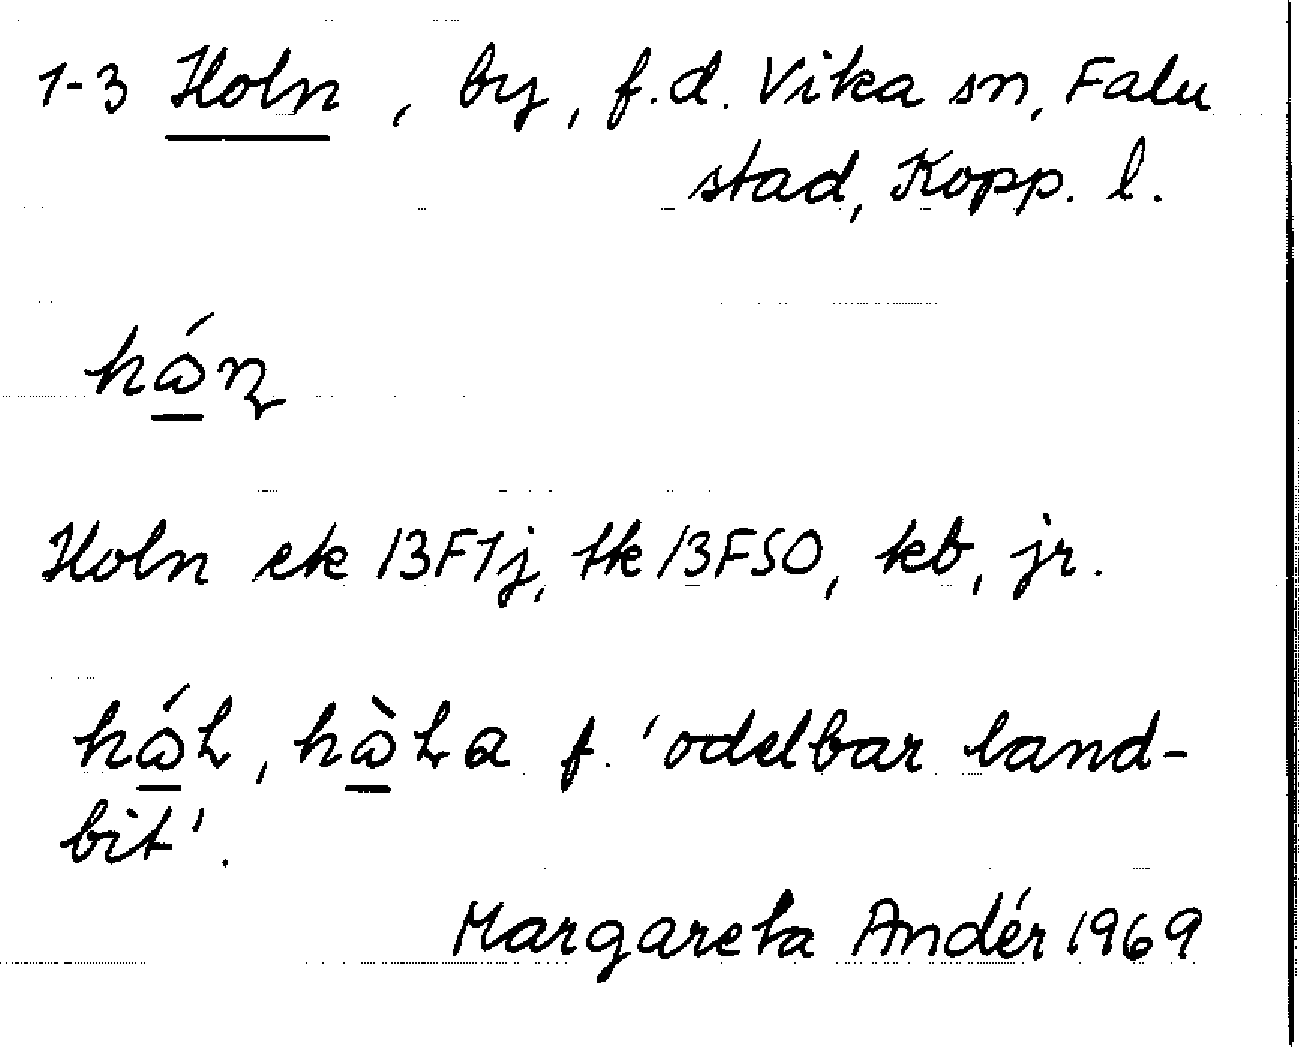 1-3 Holn, by, f.d. Vika sn, Falu
stad, Kopp. l.
hǻ̲ɳ
Holn ek 13F1j, tk 13FSO, kb, jr.
hǻ̲L, hå̲̀La f. 'odelbar land-
bit'.
Margareta Andér 1969